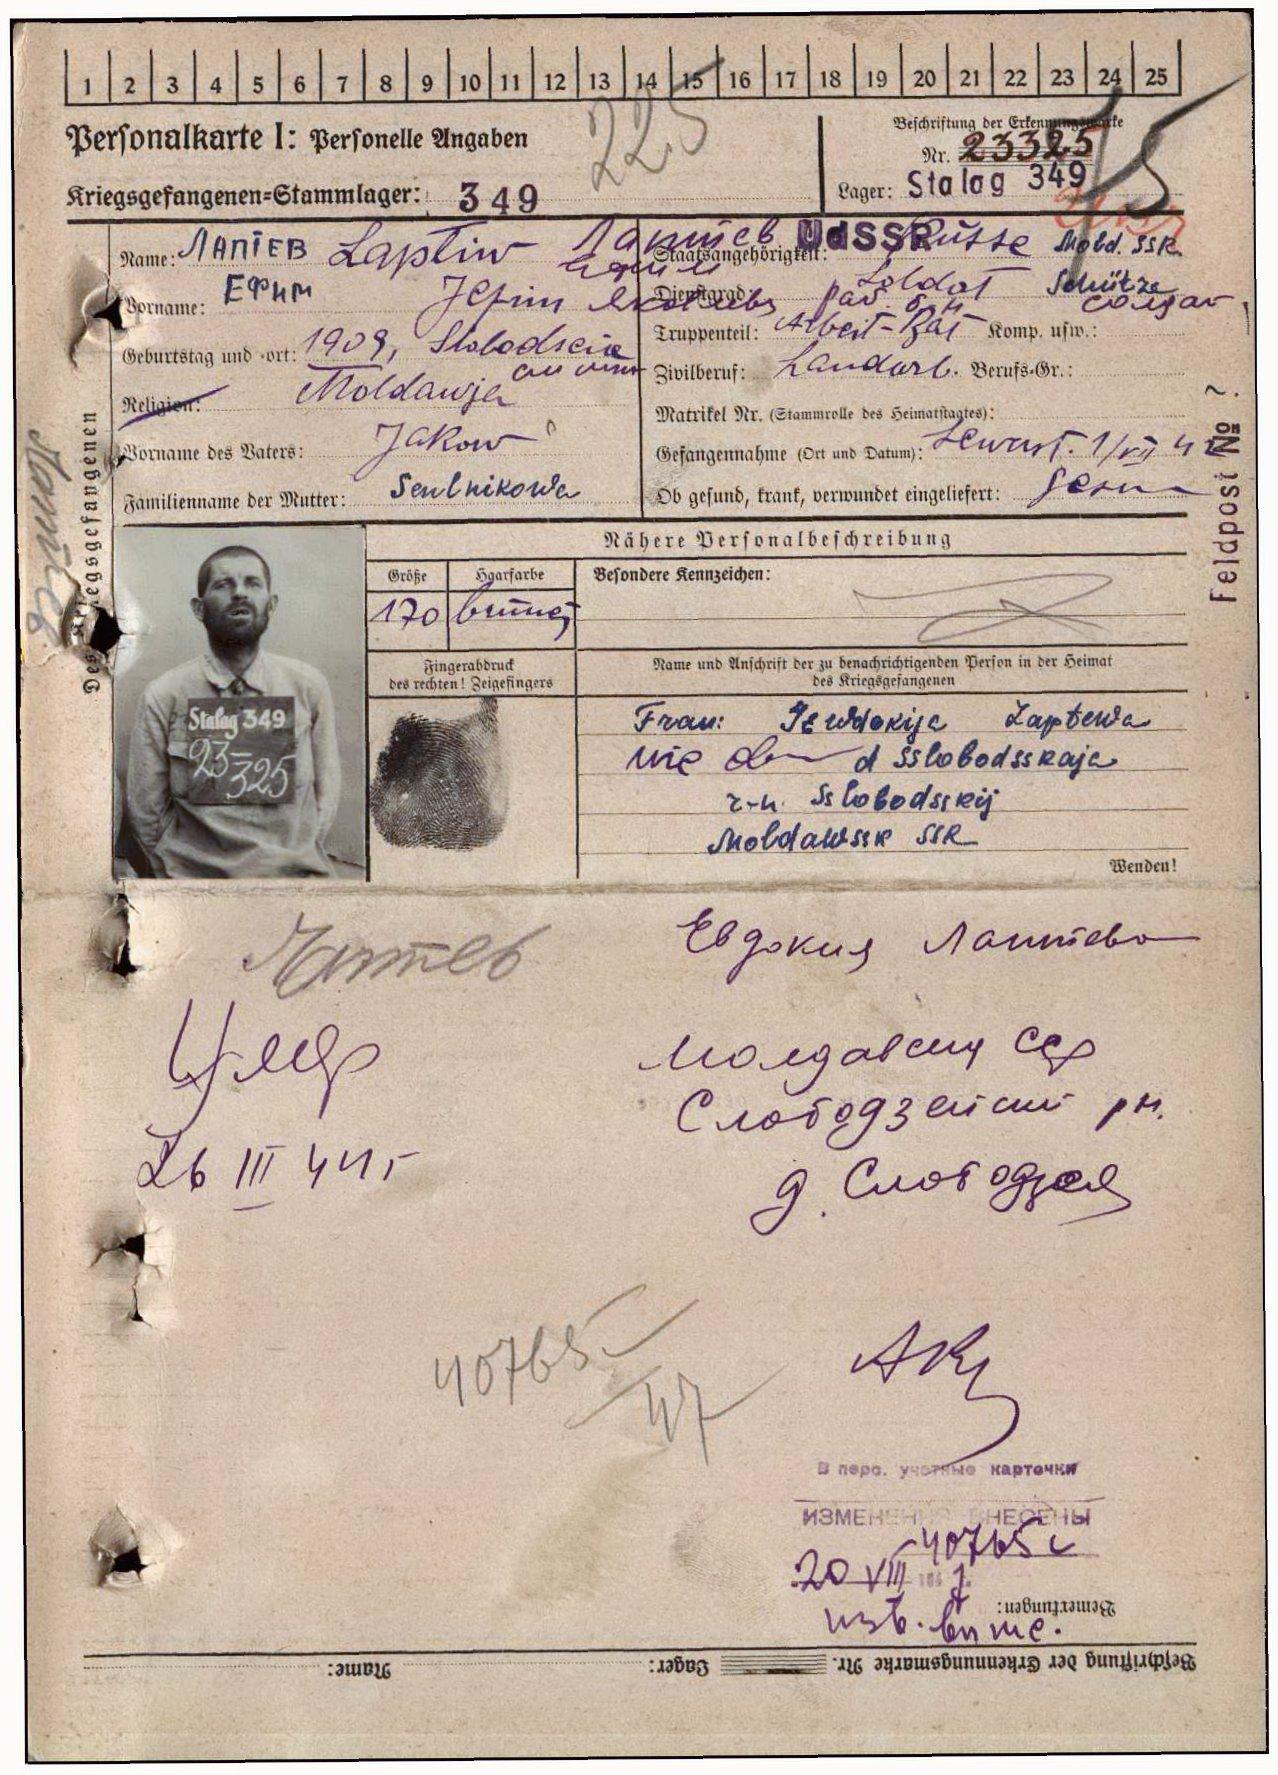 1 2 3 4 5 6 7 8 9 10 11 12 13 14 15 16 17 18 19 20 21 22 23 24 25
225
Personalkarte I: Personelle Angaben
Kriegsgefangenen-Stammlager: 349
Beschriftung der Erkennungsmarke
Nr. 23325
Lager: Stalag 349
Name: ЛАПТЕВ Laptiw Лаптев
Vorname: ЕФИМ Jefim
Geburtstag und -ort: 1909, Slobodseia
Religion: Moldawja
Vorname des Vaters: Jakow
Familienname der Mutter:
Staatsangehörigkeit: UdSSR Russe Mold. SSR
Dienstgrad: Soldat Schütze
раб. б-н солдат
Truppenteil: Arbeit-Bat Komp. usw.:
Zivilberuf: Landarb. Berufs-Gr.:
Matrikel Nr. (Stammrolle des Heimatstaates):
Gefangennahme (Ort und Datum): Sewast. 1/VII 42
Ob gesund, krank, verwundet eingeliefert:
Des Kriegsgefangenen
Лаптев
Feldpost № ?
Nähere Personalbeschreibung
Größe Haarfarbe Besondere Kennzeichen:
170
Stalag 349
23-
325
Fingerabdruck
des rechten! Zeigefingers
Name und Anschrift der zu benachrichtigenden Person in der Heimat
des Kriegsgefangenen
Frau: Jewdokija Laptewa
d Sslobodsskaja
r-n. Sslobodsskij
Moldawssk SSR
Wenden!
Лаптев
Евдокия Лаптева
Умер
26 III 44 г
Молдавския сср
Слободзейский рн.
д. Слободзея
40765с
/47
В перс. учетные карточки
ИЗМЕНЕНИЯ ВНЕСЕНЫ
40765с
20 VIII 194 7
Bemerkungen:
Beschriftung der Erkennungsmarke Nr. Lager: Name: